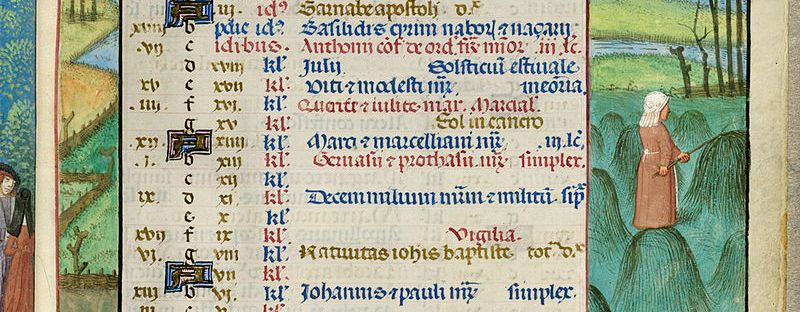 A iii id' Barnabe apostoli d.x
xviii b p'die id' Basilidis cyrini nabor & naçarii
vii c idibus. Anthonii cōf. de ord. fr̄m mīor. iii lc̄.
d xviii kl' Julii Solsticiū estivale
xv e xvii kl' Viti & modesti mr̄. meōria.
iiii f xvi. kl' & iulite mar. Marcial.
g xv kl' Sol in cancro
xii A xiiii kl' Marci & marcelliani mr̄. iii lc̄.
i. b xiii kl' Gervasii & prothasii mr̄. simplex.
c xii kl'
ix d xi. kl' Decem milium mr̄m & militū
e x kl'
xvii f ix kl' Vigilia.
vi. g viii kl' Nativitas iohīs baptiste tot. d.x
A vii kl'
xiiii b vi. kl' Johannis & pauli mr̄. simplex.